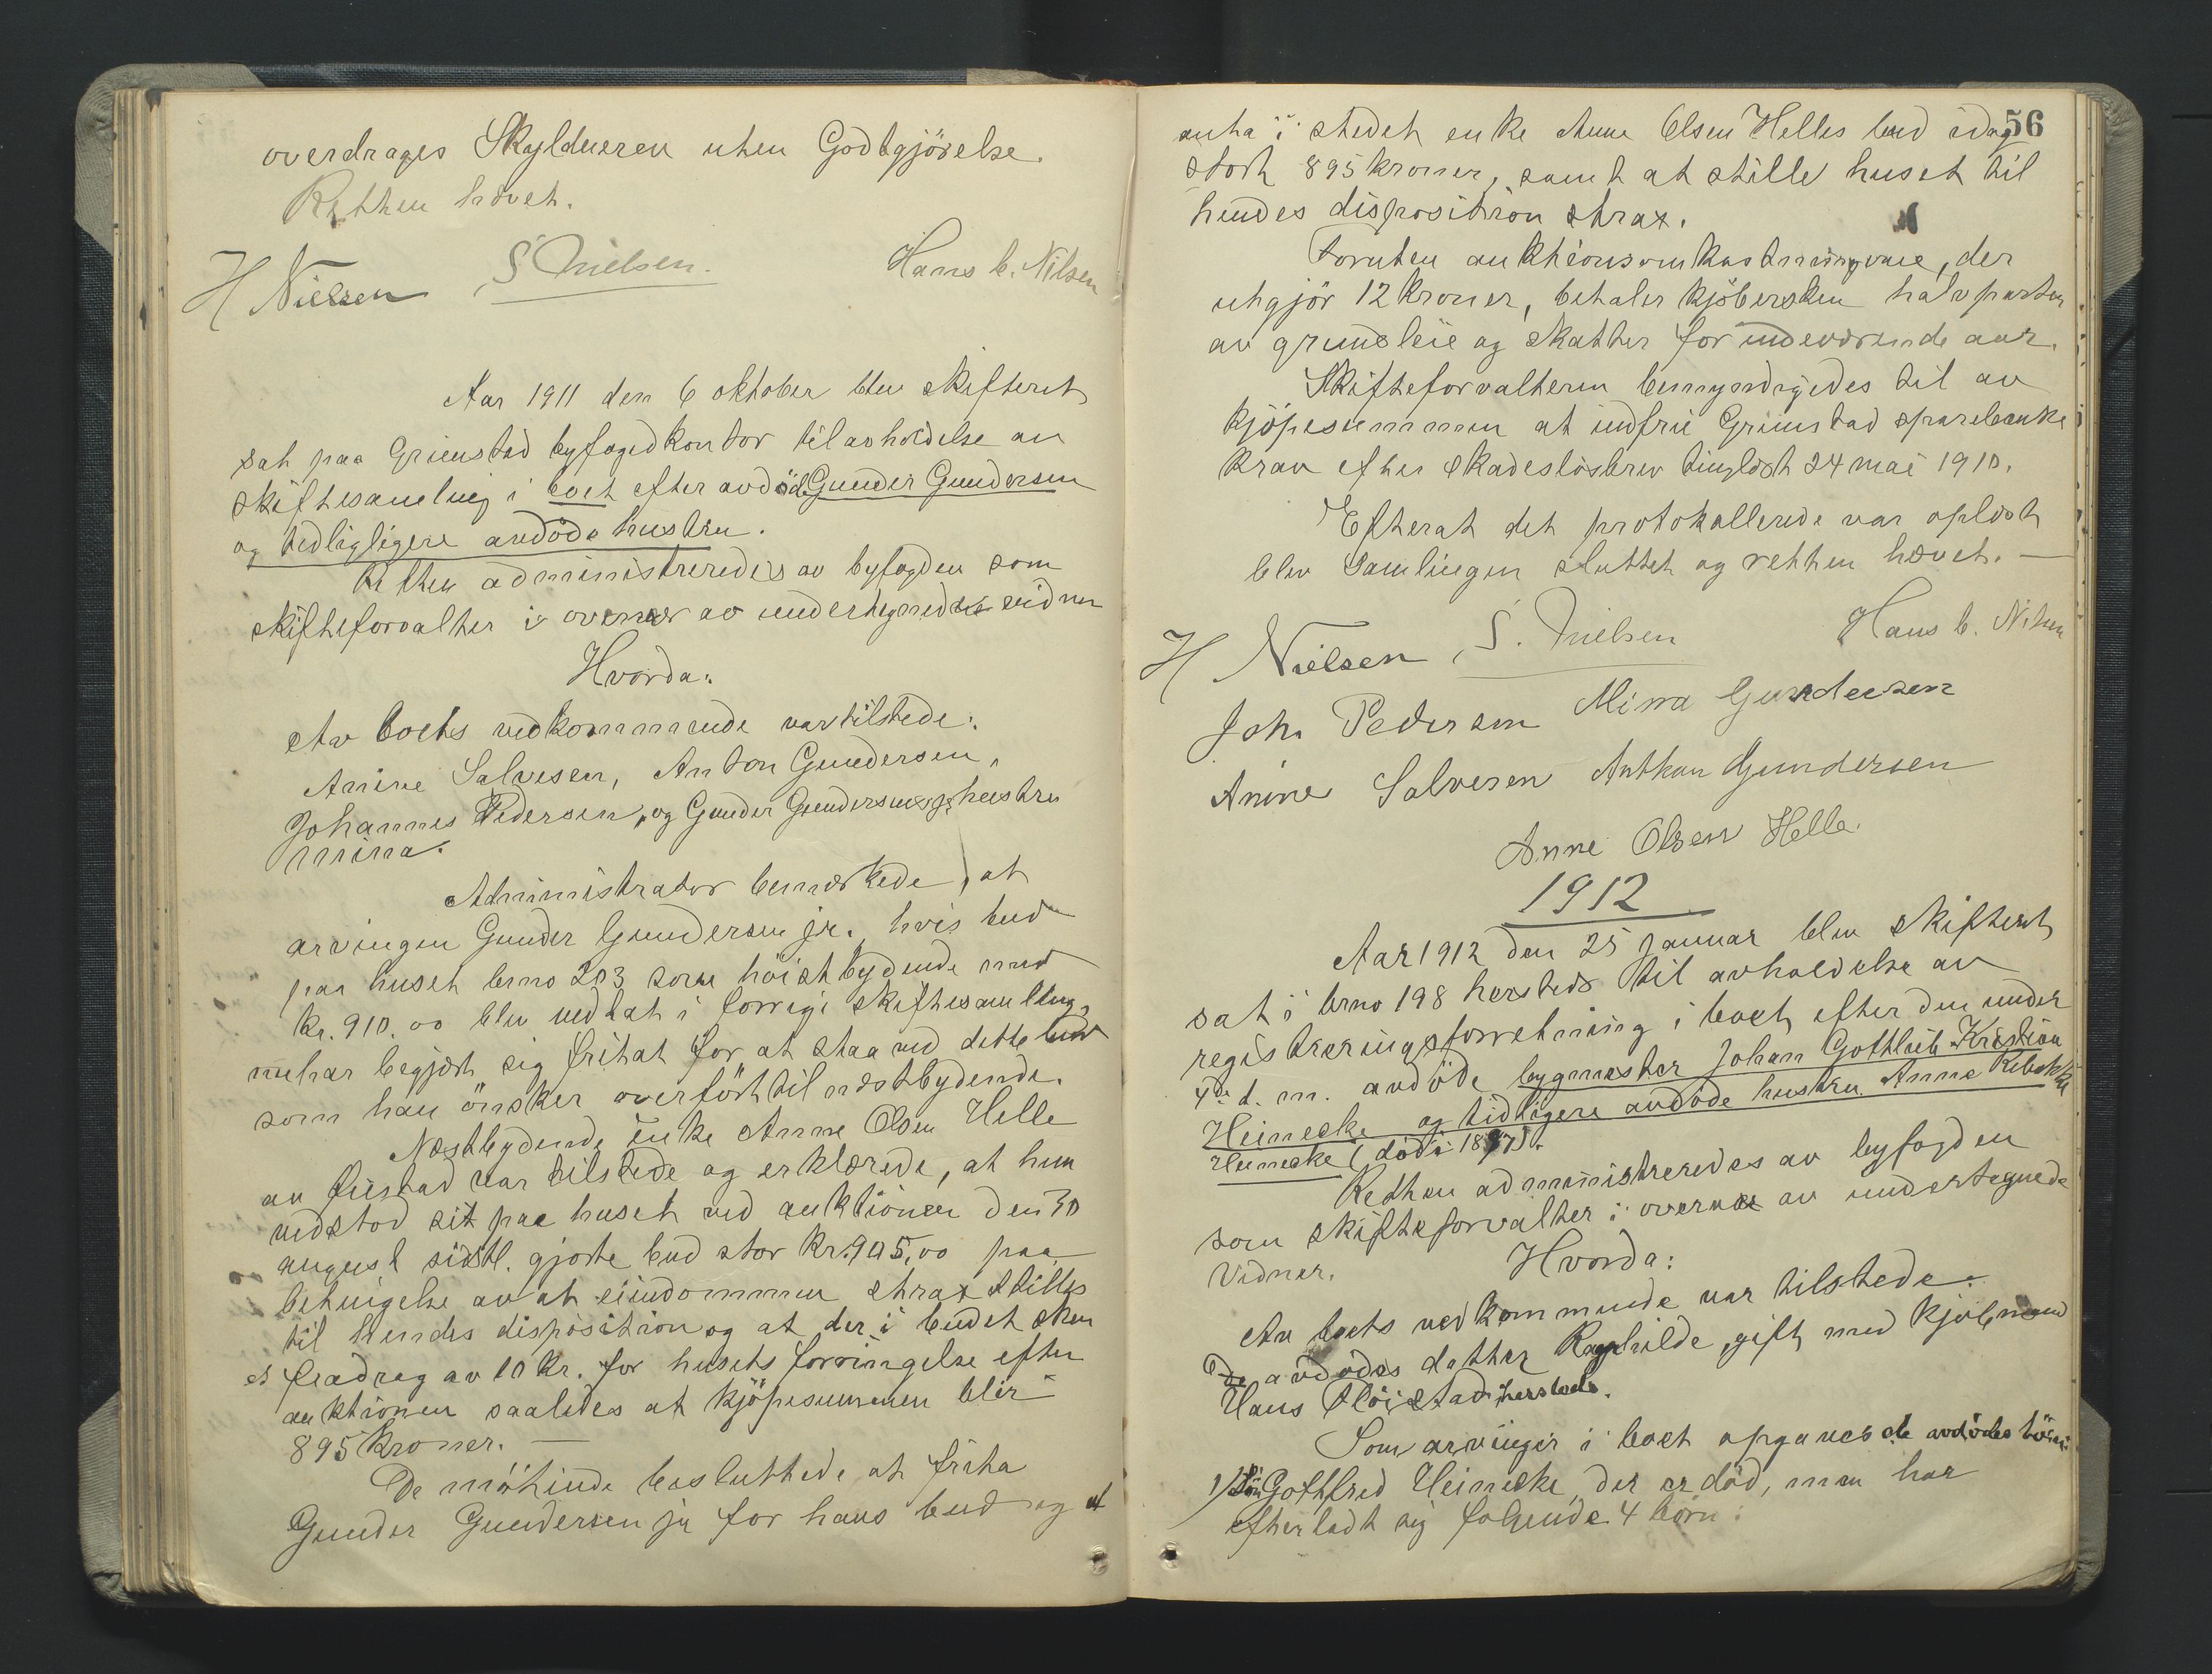 overdrages Skyldneren uten Godtgjörelse.
Retten hævet.
H Nielsen S. Nielsen. Hans C. Nilsen
Aar 1911 den 6 oktober blev skifteret
sat paa Grimstad byfogedkontor til avholdelse av
skiftesamling i boet efter avdöde Gunder Gundersen
og tidligere avdöde hustru.
Retten administreredes av byfogden som
skifteforvalter i overvær av undertegnede vidner
Hvorda:
Av boets vedkommende var tilstede:
Anine Salvesen, Anton Gundersen,
Johannes Pedersen, og Gunder Gundersens jr hustru
Mina.
Administrator bemærkede, at
arvingen Gunder Gundersen jr., hvis bud
paa huset brno 203 som höistbydende med
kr. 910.00 blev vedtat i forrige skiftesamling,
nu har begjært sig fritat for at staa ved dette bud
som han önsker overfört til næstbydende.
Næstbydende enke Anne Olsen Helle
av Fiistad var tilstede og erklærede, at hun
vedstod sit paa huset ved auktionen den 30
august sidstl. gjorte bud stor kr. 905,00 paa
betingelse av at eiendommen strax stilles
til hendes disposition og at der i budet sker
et fradrag av 10 kr. for husets forringelse efter
auktionen saaledes at kjöpesummen blir
895 kroner. —
De mötende besluttede at frita
Gunder Gundersen jr for hans bud og at
56
anta i stedet enke Anne Olsen Helles bud idag
stort 895 kroner, samt at stille huset til
hendes disposition strax.
Foruten auktionsomkostningerne, der
utgjör 12 kroner, betaler kjöbersken halvparten
av grundleie og skatter for indeværende aar.
Skifteforvalteren bemyndigedes til av
kjöpesummen at indfrie Grimstad sparebanks
krav efter skadeslösbrev tinglæst 24 mai 1910.
Efterat det protokollerede var oplæst
blev samlingen sluttet og retten hævet. —
H Nielsen S. Nielsen Hans C. Nilsen
Joh. Pedersen Mina Gundersen
Anine Salvesen Anthon Gundersen
Anne Olsen Helle
1912
Aar 1912 den 25 januar blev skifteret
sat i brno 198 hersteds til avholdelse av
registreringsforretning i boet efter den under
4de d. m. avdöde bygmester Johan Gottlieb Kristian
Heinecke og tidligere avdöde hustru Anne Rebekka
Heinecke (död i 1897).
Retten administreredes av byfogden
som skifteforvalter i overvær av undertegnede
Vidner.
Hvorda:
Av boets vedkommende var tilstede:
De avdödes datter Ragnhilde, gift med kjöbmand
Hans Flöistad hersteds.
Som arvinger i boet opgaves de avdödes börn:
1) Sön Gottfred Heinecke, der er död, men har
efterladt sig følgende 4 börn: